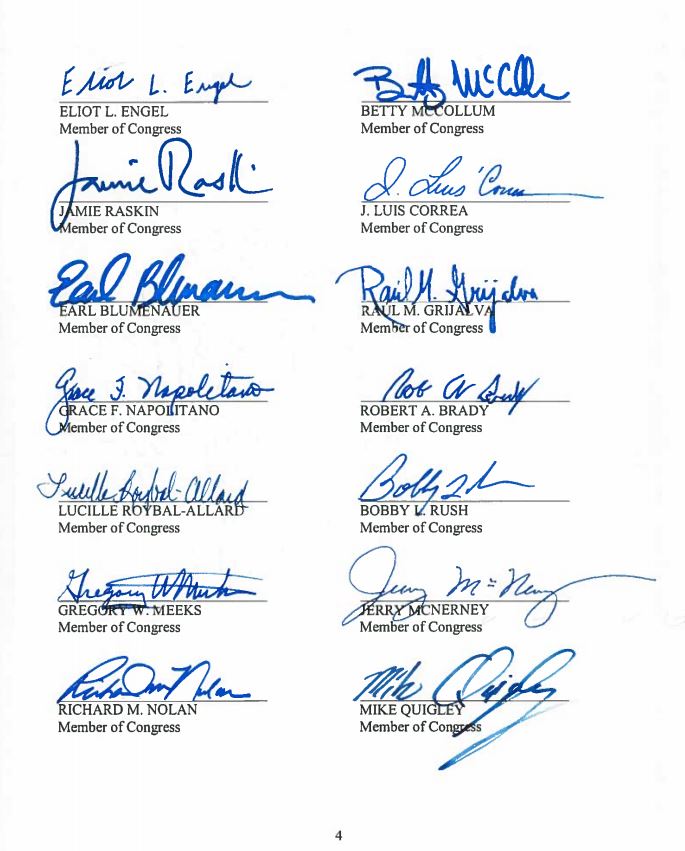 Eliot L. Engel
ELIOT L. ENGEL
Member of Congress
Betty McCollum
BETTY MCCOLLUM
Member of Congress
Jamie Raskin
JAMIE RASKIN
Member of Congress
J. Luis Correa
J. LUIS CORREA
Member of Congress
Earl Blumenauer
EARL BLUMENAUER
Member of Congress
Raúl M. Grijalva
RAUL M. GRIJALVA
Member of Congress
Grace F. Napolitano
GRACE F. NAPOLITANO
Member of Congress
Rob A Brady
ROBERT A. BRADY
Member of Congress
Lucille Roybal-Allard
LUCILLE ROYBAL-ALLARD
Member of Congress
Bobby L Rush
BOBBY L. RUSH
Member of Congress
Gregory W Meeks
GREGORY W. MEEKS
Member of Congress
Jerry McNerney
JERRY MCNERNEY
Member of Congress
Richard M Nolan
RICHARD M. NOLAN
Member of Congress
Mike Quigley
MIKE QUIGLEY
Member of Congress
4